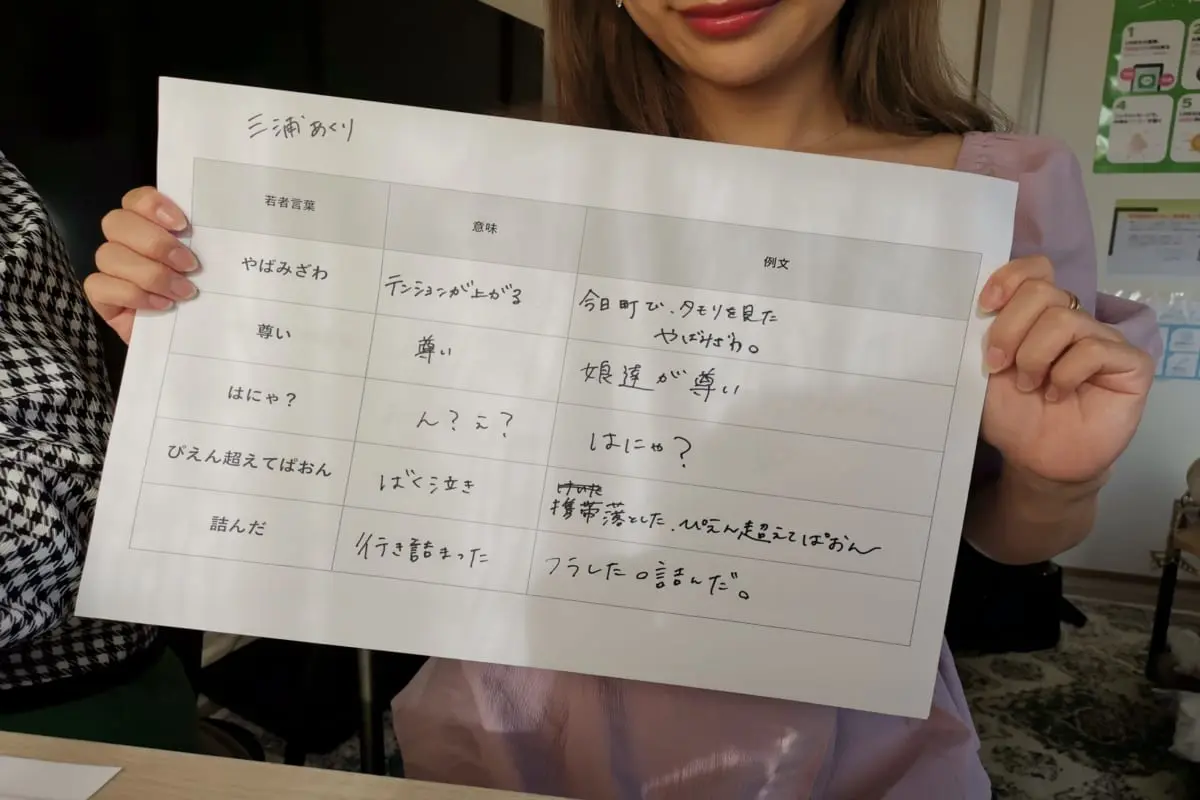 三浦めぐり
若者言葉 意味 例文
やばみざわ テンションが上がる 今日町で、タモリを見た
やばみざわ。
尊い 尊い 娘達が尊い
はにゃ? ん?え? はにゃ?
ぴえん超えてぱおん ばく泣き 携帯落とした、ぴえん超えてぱおん
詰んだ 行き詰まった フラした。詰んだ。
1
4
5